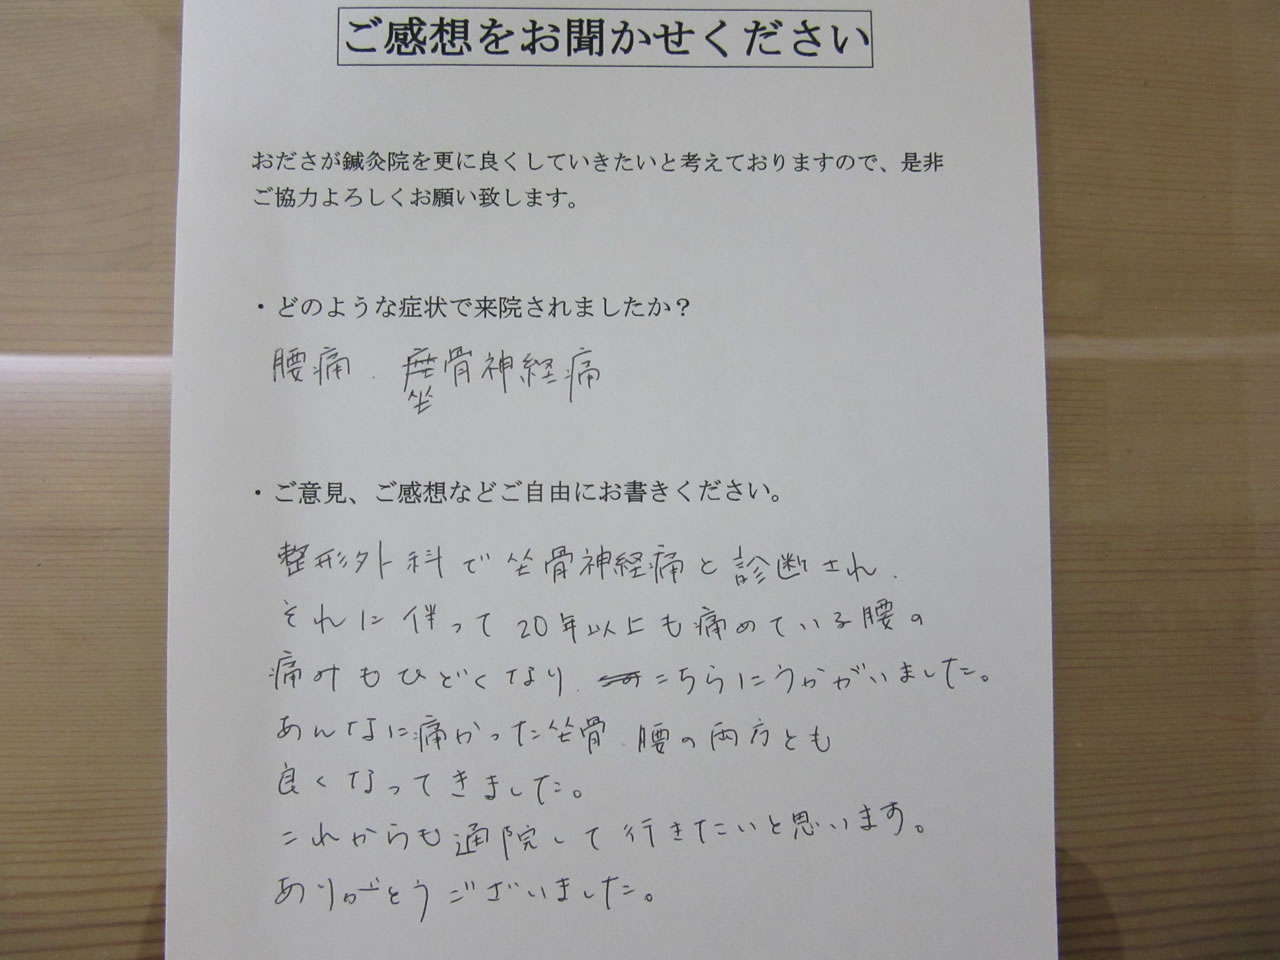 ご感想をお聞かせください
おださが鍼灸院を更に良くしていきたいと考えておりますので、是非
ご協力よろしくお願い致します。
・どのような症状で来院されましたか？
腰痛、座骨神経痛
坐
・ご意見、ご感想などご自由にお書きください。
整形外科で坐骨神経痛と診断され、
それに伴って20年以上も痛めている腰の
痛みもひどくなり、こちらにうかがいました。
あんなに痛かった坐骨、腰の両方とも
良くなってきました。
これからも通院して行きたいと思います。
ありがとうございました。